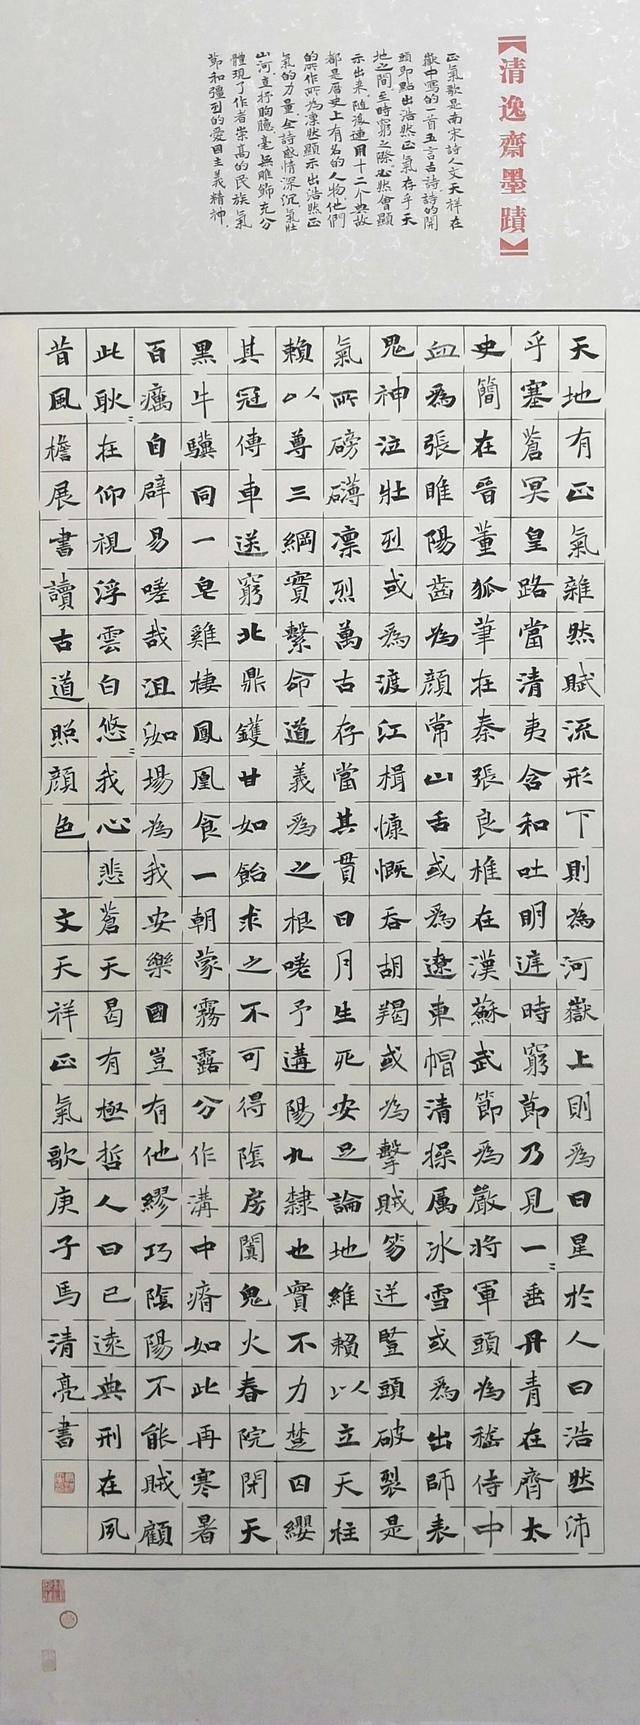 【清逸齋墨蹟】
正氣歌是南宋詩人文天祥在
獄中寫的一首五言古詩詩的開
頭即點出浩然正氣存乎天
地之間至時窮之際必然會顯
示出来随後連用十二个典故
都是曆史上有名的人物他們
的所作所為凛然顯示出浩然正
氣的力量全詩感情深沉氣壯
山河直抒胸臆毫無雕飾充分
體現了作者崇高的民族氣
節和强烈的愛国主義精神
天地有正氣雜然賦流形下則為河嶽上則為日星於人曰浩然沛
乎塞蒼冥皇路當清夷含和吐明庭時窮節乃見一〻垂丹青在齊太
史簡在晉董狐筆在秦張良椎在漢蘇武節為嚴將軍頭為嵇侍中
血為張睢陽齒為顏常山舌或為遼東帽清操厲冰雪或為出師表
鬼神泣壯烈或為渡江楫慷慨吞胡羯或為擊賊笏逆豎頭破裂是
氣所磅礴凛烈萬古存當其貫日月生死安足論地維賴以立天柱
賴以尊三綱實繫命道義為之根嗟予遘陽九隸也實不力楚囚纓
其冠傳車送窮北鼎鑊甘如飴求之不可得陰房闃鬼火春院閉天
黑牛驥同一皂雞棲鳳凰食一朝蒙霧露分作溝中瘠如此再寒暑
百癘自辟易嗟哉沮洳場為我安樂國豈有他繆巧陰陽不能賊顧
此耿〻在仰視浮雲白悠〻我心悲蒼天曷有極哲人日已遠典刑在夙
昔風檐展書讀古道照顏色 文天祥正氣歌庚子馬清亮書